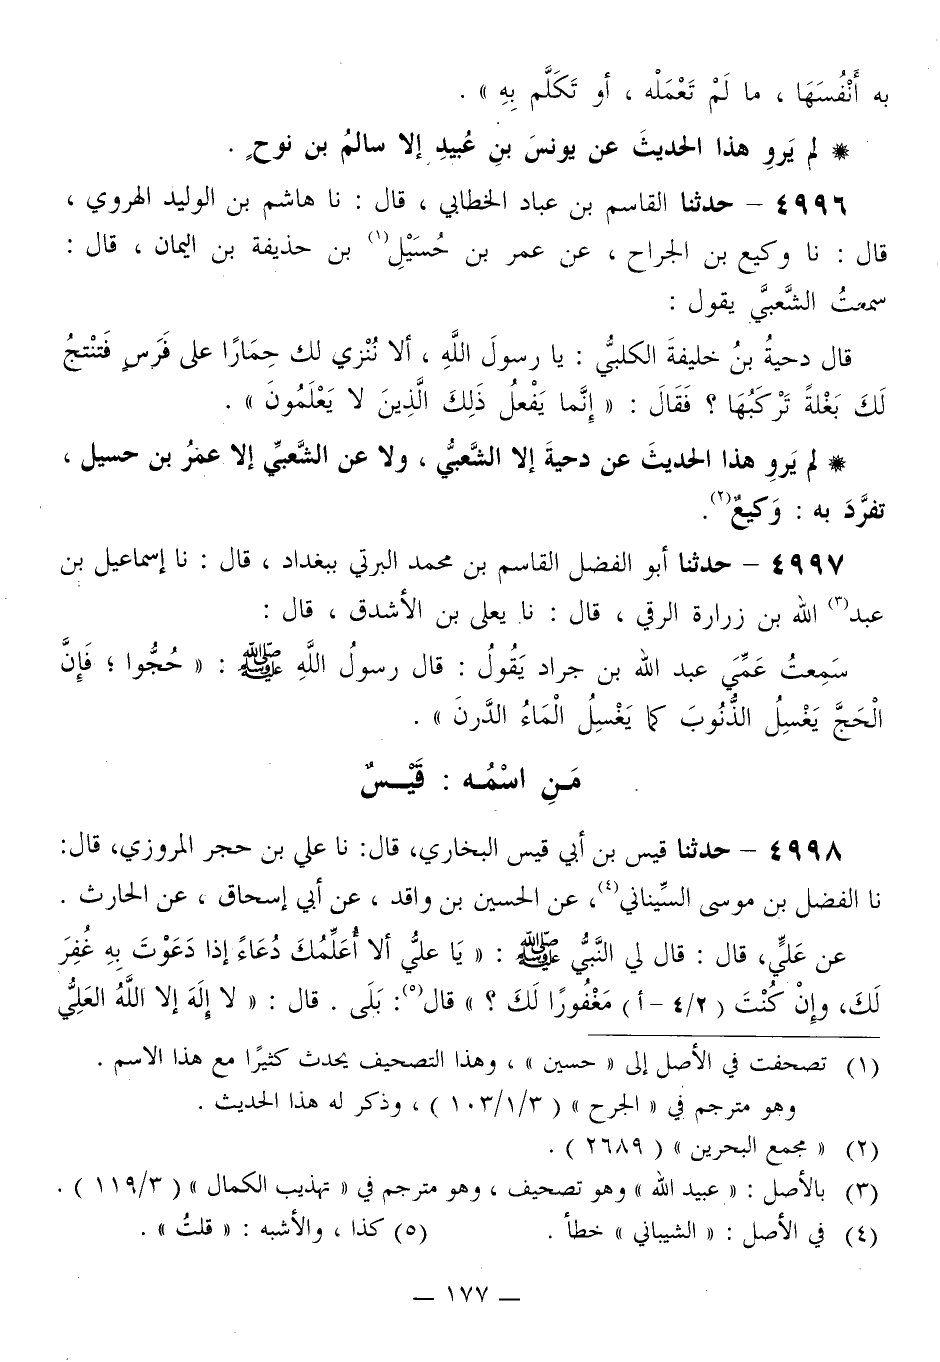 به أَنْفُسَهَا ، ما لَمْ تَعْمَلْه ، أو تَكَلَّم بِهِ » .
* لم يَروِ هذا الحديثَ عن يونسَ بنِ عُبيدِ إلا سالمُ بن نوحٍ .
٤٩٩٦ – حدثنا القاسم بن عباد الخطابي ، قال : نا هاشم بن الوليد الهروي ،
قال : نا وكيع بن الجراح ، عن عمر بن حُسَيْلِ(١) بن حذيفة بن اليمان ، قال :
سمعتُ الشَّعبيَّ يقول :
قال دحيةُ بنُ خليفةَ الكلبيُّ : يا رسولَ اللَّهِ ، ألا نُنْزي لك حِمَارًا على فَرَسٍ فَتَنْتجُ
لَكَ بَغْلةً تَرْكَبُهَا ؟ فَقَالَ : « إِنَّما يَفْعلُ ذَلِكَ الَّذِينَ لا يَعْلَمُونَ » .
* لم يَروِ هذا الحديثَ عن دحيةَ إلا الشَّعبيُّ ، ولا عن الشَّعبيِّ إلا عمرُ بن حسيل ،
تفرَّدَ به : وَكيعٌ(٢).
٤٩٩٧ – حدثنا أبو الفضل القاسم بن محمد البرتي ببغداد ، قال : نا إسماعيل بن
عبد(٣) الله بن زرارة الرقي ، قال : نا يعلى بن الأشدق ، قال :
سَمِعتُ عَمِّيَ عبد الله بن جراد يَقُولُ : قال رسولُ اللَّهِ ﷺ : « حُجُّوا ؛ فَإِنَّ
الْحَجَّ يَغْسِلُ الذُّنُوبَ كما يَغْسِلُ الْمَاءُ الدَّرنَ » .
مَنِ اسْمُه : قَيْـسٌ
٤٩٩٨ – حدثنا قيس بن أبي قيس البخاري، قال: نا علي بن حجر المروزي، قال:
نا الفضل بن موسى السِّيناني(٤)، عن الحسين بن واقد ، عن أبي إسحاق ، عن الحارث .
عن عَليٍّ، قال : قال لي النَّبيُّ ﷺ : « يَا عليُّ ألا أُعَلِّمُكَ دُعَاءً إذا دَعَوْتَ بِهِ غُفِرَ
لَكَ، وإنْ كُنْتَ ( ٤/٢ –أ ) مَغْفُورًا لَكَ ؟ » قال(٥): بَلَى . قال : « لا إِلَهَ إلا اللَّهُ العَلِيُّ
(١) تصحفت في الأصل إلى « حسين » ، وهذا التصحيف يحدث كثيرًا مع هذا الاسم .
وهو مترجم في « الجرح » ( ١٠٣/١/٣ ) ، وذكر له هذا الحديث .
(٢) « مجمع البحرين » ( ٢٦٨٩ ) .
(٣) بالأصل : « عبيد الله » وهو تصحيف ، وهو مترجم في « تهذيب الكمال » ( ١١٩/٣ ) .
(٤) في الأصل : « الشيباني » خطأ . (٥) كذا ، والأشبه : « قلتُ » .
— ١٧٧ —